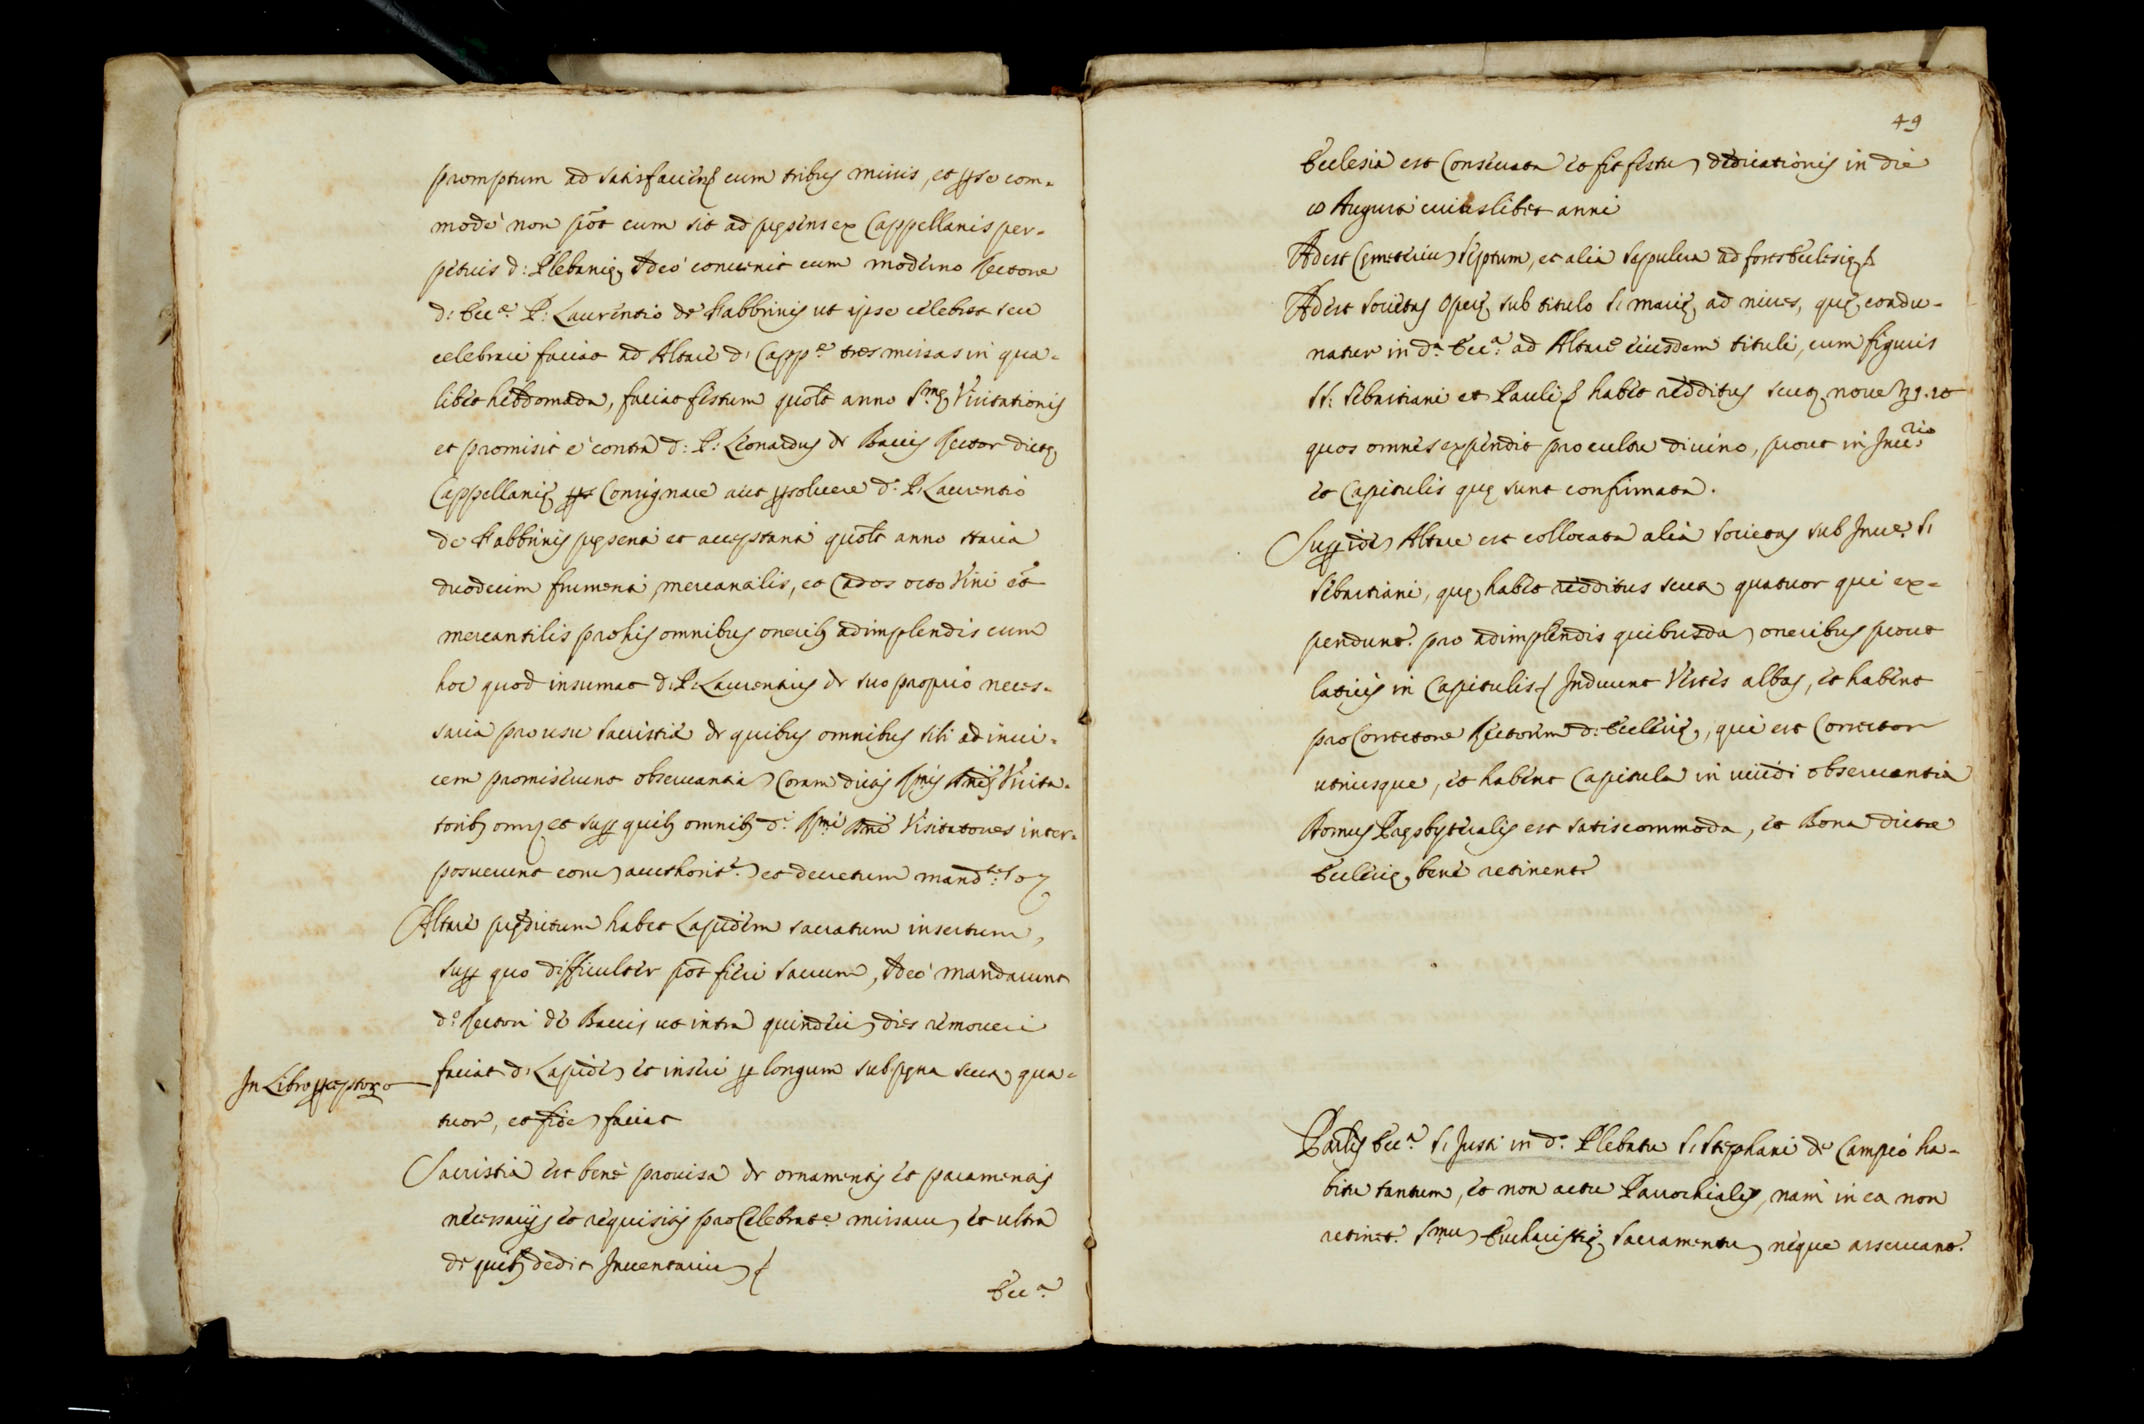 promptum ad satisfaciend cum tribus missis, et per se com-
mode non pōt cum sit ad presens ex Cappellanis per-
petuis d: Plebanię, Adeo convenit cum moderno Rectore
d: Eccę P: Laurentio de Fabbrinis ut ipse celebret seu
celebrari faciat ad Altare d: Cappę tres missas in qua-
libet hebdomada, faciat festum quolt anno Smę Visitationis
et promisit è contra d: P: Leonardus de Baccis Rector dictę
Cappellanię Consignare aut persolvere d: P: Laurentio
de Fabbrinis presenti et acceptanti quolt anno staria
duodecim frumenti mercantilis, et Cados octo Vini et
mercantilis pro his omnibus onerib adimplendis cum
hoc quod insumat d: P: Laurentius de suo proprio neces-
saria pro usu sacristiæ de quibus omnibus sibi ad invi-
cem promiserunt observantia Coram dictis Rmis Visita-
torib omni et super quib omnib d: Rmi Visitatores inter-
posuerunt eorum authorit: et decretum mand:
Altare predictum habet Lapidem sacratum insertum,
super quo difficulter pōt fieri sacrum, Adeo mandarunt
d: Rectori de Baccis ut intra quindeci dies removeri
faciat d: Lapide et inseri per longum sub pena scuta qua-
In Libro preceptor
tuor, et fide faciat
Sacristia est bene provisa de ornamentis et paramentis
necessarijs et requisitis pro Celebrate missaru, et ultra
de quib dedit Inventariu
Eccª
49
Ecclesia est Consecrata et fit festu dedicationis in die
10 Augusti cuiuslibet anni
Adest Cęmeteriu septum, et alia sepulcra ad fores Ecclesię
Adest societas Operę sub titulo S. Marię ad nives, quę coadu-
natur in dª Eccª ad Altare eiusdem tituli, cum figuris
SS: Sebastiani et Pauli habet redditus scutę nove
quos omnes expendit pro cultu divino, prout in Inv:rio
et Capitulis quę sunt confirmata.
Super ide Altare est collocata alia societas sub Invc: S.
Sebastiani, quę habet redditus scuta quatuor qui ex-
pendunt: pro adimplendis quibusda oneribus prout
latius in Capitulis Induunt Vestes albas, et habent
pro Correctore Rectorem d: Ecclesię, qui est Corrector
utriusque, et habent Capitula in viridi observantia
Domus Pręsbyteralis est satis commoda, et Bona dictæ
Ecclesię bene retinent
Parlis Eccª S. Justi in dº Plebatu S. Stephani de Campio ha-
bitu tantum, et non actu Parrochialis, nam in ea non
retinet: Smu Eucharistię Sacramentu, neque asservant: